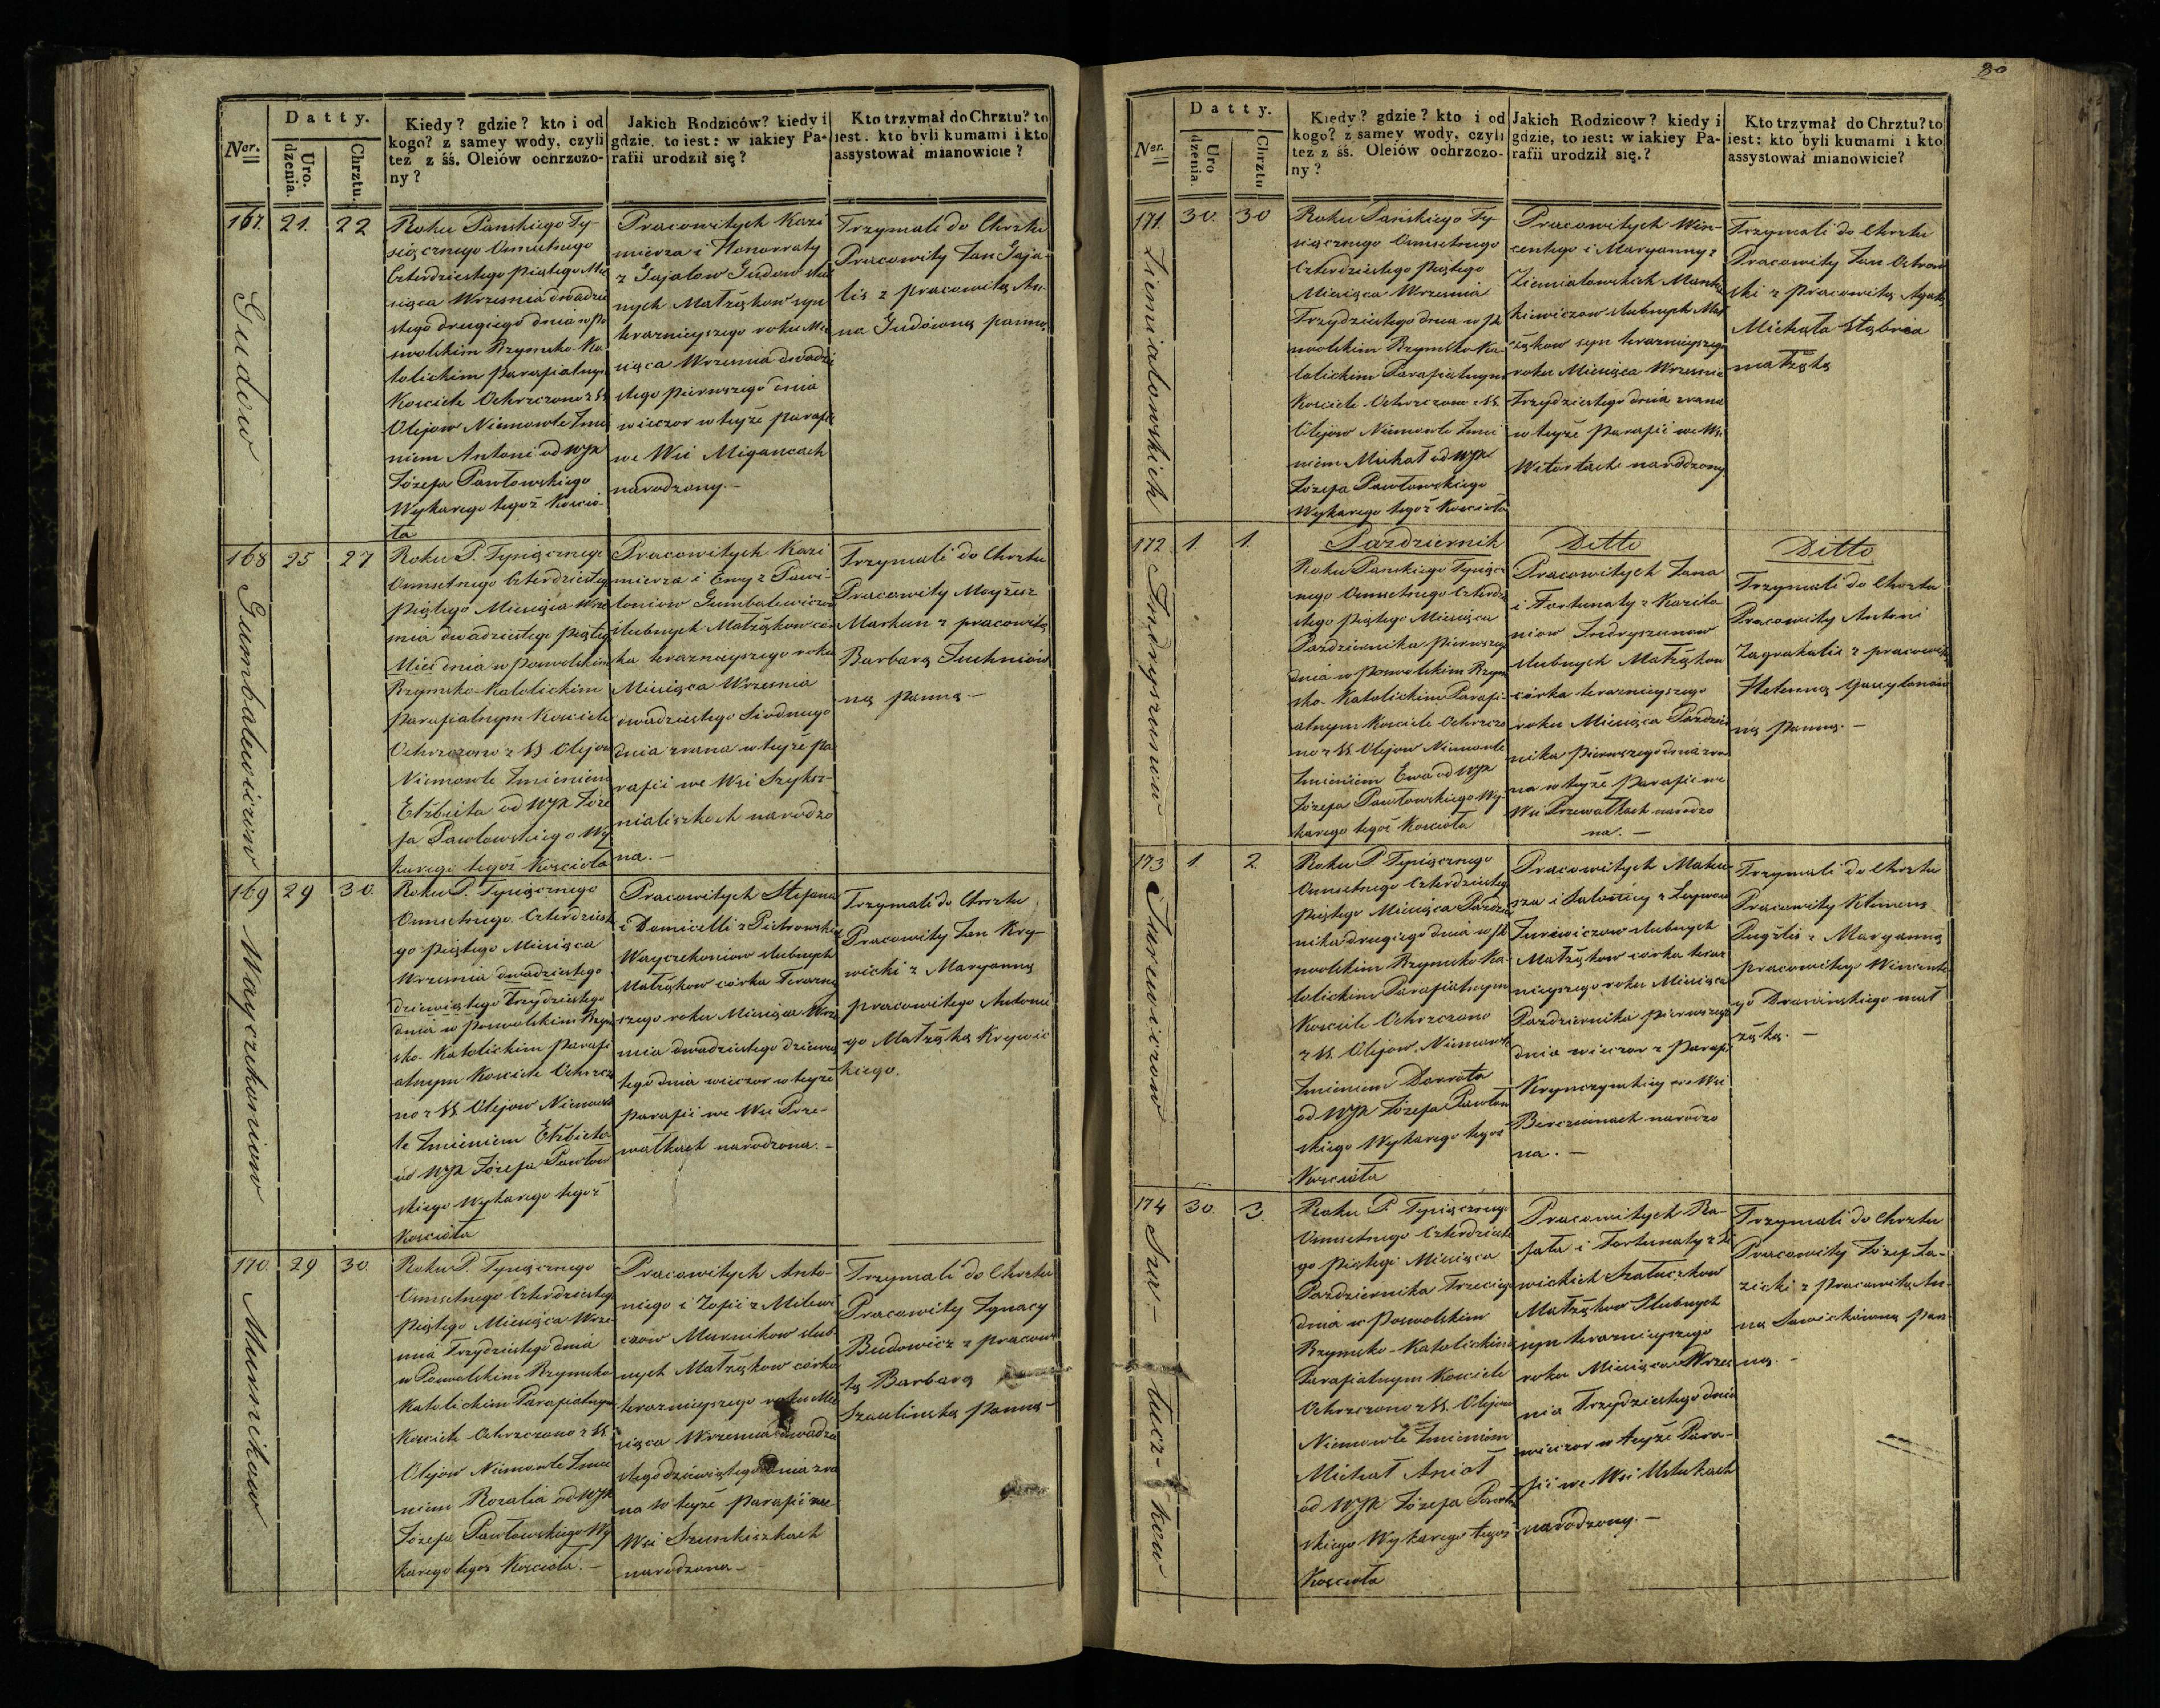 Datty.
Ner.
Uro. dzenia.
Chrztu.
Kiedy? gdzie? kto i od
kogo? z samey wody, czyli
też z śś. Oleiów ochrzczo-
ny?
Jakich Rodziców? kiedy i
gdzie, to iest: w iakiey Pa-
rafii urodził się?
Kto trzymał do Chrztu? to
iest. kto byli kumami i kto
assystował mianowicie?
167. 21. 22
Gudow
Roku Panskiego Ty-
siącznego Osmsetnego
Czterdziestego piątego Mie
siąca Wrzesnia dwadzie
stego drugiego dnia w Po
swolskim Rzymsko-Ka
tolickim parafialnym
Kosciele Ochrzczono z SS
Olejow Niemowle Imie
niem Antoni od WJX
Józefa Pawłowskiego
Wykarego tegoż Koscio-
ła
Pracowitych Kazi
mierza i Honorraty
z Gajalow Gudow slub
nych Małżąkow syn
terazniejszego roku Mie
siąca Wrzesnia dwadzie
stego pierwszego dnia
wieczor w teyże parafii
we Wsi Migancach
narodzony.-
Trzymali do Chrztu
Pracowity Jan Gaja-
lis z pracowitą An-
ną Gudówną panną
168 25 27
Gumbalewiczow
Roku P. Tysiącznego
Osmsetnego Czterdziestego
piątego Miesiąca Wrze
snia dwadziestego piątego
Mies dnia w poswolskim
Rzymsko-Katolickim
parafialnym Kosciele
Ochrzczono z SS Olejow
Niemowle Imieniem
Elżbieta od WJX Józe
fa Pawłowskiego Wy
karego tegoż Kościoła
Pracowitych Kazi
mierza i Ewy z Pawi-
loniow Gumbalewiczow
slubnych Małżąkow cór
ka terazniejszego roku
Miesiąca Wrzesnia
dwadziestego siodmego
dnia zrana w teyże pa
rafii we Wsi Szyksz-
nialiszkach narodzo
na.-
Trzymali do Chrztu
Pracowity Moyżesz
Markun z pracowitą
Barbarą Juchniów
ną panną-
169 29 30.
Wayczekoniow
Roku P. Tysiącznego
Osmsetnego Czterdzieste
go piątego Miesiąca
Wrzesnia dwadziestego
dziewiątego Trzydziestego
dnia w poswolskim Rzym
sko-Katolickim parafi
alnym Kosciele Ochrzczo
no z SS Olejow Niemow
le Imieniem Elżbieta
od WJX Józefa Pawłow
skiego Wykarego tegoż
Kosciola
Pracowitych Stefana
i Domicelli z Piotrowskich
Wayczekoniow slubnych
Małżąkow córka Teraznie
szego roku Miesiąca Wrze
snia dwadziestego dziewią
tego dnia wieczor w teyże
parafii we Wsi Prze-
wałkach narodzona.-
Trzymali do Chrztu
Pracowity Jan Kry-
wicki z Maryanną
pracowitego Antonie
go Małżąką Krywic
kiego.
170 29 30
Murnikow
Roku P. Tysiącznego
Osmsetnego Czterdziestego
piątego Miesiąca Wrze-
snia Trzydziestego dnia
w Poswolskim Rzymsko
Katolickim Parafialnym
Kosciele Ochrzczono z SS
Olejow Niemowle Imie
niem Rozalia od WJX
Józefa Pawłowskiego Wy
karego tegoż Kosciola.-
Pracowitych Anto-
niego i Zofii z Milewi
czow Murnikow slub-
nych Małżąkow córka
terazniejszego roku Mie
siąca Wrzesnia dwadzie
stego dziewiątego dnia zra
na w teyże parafii we
Wsi Szumkiszkach
narodzona-
Trzymali do Chrztu
Pracowity Ignacy
Budowicz z pracowi
tą Barbarą
Szaulinską panną-
80
Datty.
Ner.
Uro dzenia.
Chrztu
Kiedy? gdzie? kto i od
kogo? z samey wody, czyli
też z śś. Oleiów ochrzczo-
ny?
Jakich Rodzicow? kiedy i
gdzie, to iest: w iakiey Pa-
rafii urodził się.?
Kto trzymał do Chrztu? to
iest: kto byli kumami i kto
assystował mianowicie?
171. 30. 30
Ziemialowskich
Roku Pańskiego Ty-
siącznego Osmsetnego
Czterdziestego piątego
Miesiąca Wrzesnia
Trzydziestego dnia w po
swolskim Rzymsko Ka-
tolickim Parafialnym
Kosciele Ochrzczono z SS.
Olejow Niemowle Imie
niem Michał od WJX
Józefa Pawłowskiego
Wykarego tegoż Kosciola
Pracowitych Win-
centego i Maryanny z
Ziemialowskich
slubnych Mał
żąkow syn terazniejszego
roku Miesiąca Wrzesnia
Trzydziestego dnia zrana
w teyże parafii we Wsi
Witartach narodzony
Trzymali do Chrztu
Pracowity Jan Ostrow
ski z pracowitą Agatą
Michała
małżąką
172 1. 1.
Indryszunow
Pazdziernik
Roku Panskiego Tysiącz
nego Osmsetnego Czterdzie
stego piątego Miesiąca
Pazdziernika pierwszego
dnia w poswolskim Rzym
sko-Katolickim Parafi-
alnym Kosciele Ochrzczo
no z SS. Olejow Niemowle
Imieniem Ewa od WJX
Józefa Pawłowskiego Wy-
karego tegoż Kosciola
Ditto
Pracowitych Jana
i Fortunaty z Kazilo
niow Indryszunow
slubnych Małżąkow
córka terazniejszego
roku Miesiąca Pazdzier
nika pierwszego dnia zra
na w teyże parafii we
Wsi Przewałkach narodzo
na.-
Ditto
Trzymali do Chrztu
Pracowity Antoni
Zagrakalis z pracowitą
Helenną
ną panną.-
173 1. 2.
Jurewiczow
Roku P. Tysiącznego
Osmsetnego Czterdziestego
piątego Miesiąca Pazdzier
nika drugiego dnia w po
swolskim Rzymsko Ka-
tolickim Parafialnym
Kosciele Ochrzczono
z SS. Olejow Niemowle
Imieniem Dorrota
od WJX Józefa Pawłow
skiego Wykarego tegoż
Kosciola
Pracowitych Mateu
sza i Salomei z
Jurewiczow slubnych
Małżąkow córka teraz
niejszego roku Miesiąca
Pazdziernika pierwszego
dnia wieczor z parafii
Krynczynskiey we Wsi
Berczunach narodzo
na.-
Trzymali do Chrztu
Pracowity Klemens
Pugżlis z Maryanną
pracowitego Wincente
go Drawinskiego mał
żąką.-
174 30. 3.
Szałuczkow
Roku P. Tysiącznego
Osmsetnego Czterdzieste
go piątego Miesiąca
Pazdziernika Trzeciego
dnia w Poswolskim
Rzymsko-Katolickim
Parafialnym Kosciele
Ochrzczono z SS. Olejow
Niemowle Imieniem
Michał Anioł
od WJX Józefa Pawłow
skiego Wykarego tegoż
Kosciola
Pracowitych Ra-
fała i Fortunaty z
wickich Szałuczkow
Małżąkow Slubnych
syn terazniejszego
roku Miesiąca Wrzes
nia Trzydziestego dnia
wieczor w teyże Para-
fii we Wsi Ustukach
narodzony.-
Trzymali do Chrztu
Pracowity Józef Ła-
zicki z Pracowitą An-
ną Sawickówną pan
ną.-